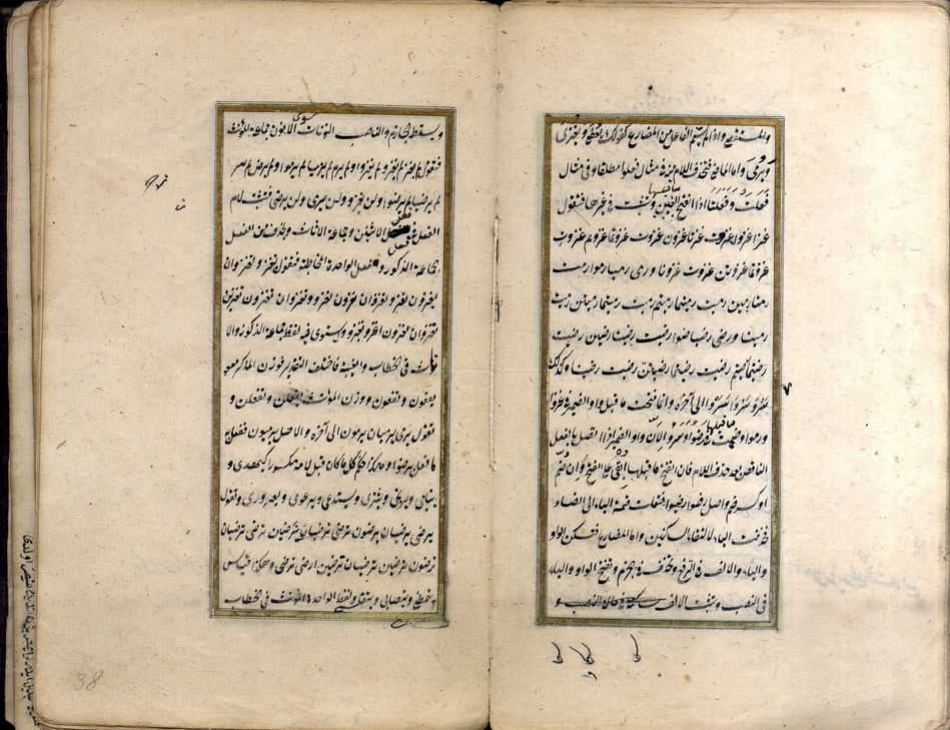 والمستقصى واذا لم يسم الفاعل من المضارع كقولك يعطى ويغزى
ويرمى واما الماضى فتحذف اللام منه فى مثال فعلوا مطلقا وفى مثال
فعلت وفعلتا اذا انفتح ما قبلها وتثبت فى غيرها فتقول
غزا غزوا غزوا غزت غزتا غزون غزوت غزوتما غزوتم غزوت
غزوتما غزوتن غزوت غزونا ورمى رميا رموا رمت
رمتا رمين رميت رميتما رميتم رميت رميتما رميتن رميت
رمينا ورضى رضيا رضوا رضيت رضيتا رضين رضيت
رضيتما رضيتم رضيت رضيتما رضيتن رضيت رضينا وكذلك
سرو سروا سروا الى آخره وانما فتحت ما قبل واو الضمير فى غزوا
ورموا وضمت ما قبلها فى رضوا وسروا لان واو الضمير اذا اتصل بالفعل
الناقص بعد حذف اللام فان انفتح ما قبلها ابقى على الفتح وان انضم
او كسر ضم واصل رضوا رضيوا فنقلت ضمة الياء الى الضاد
وحذفت الياء لالتقاء الساكنين واما المضارع فتسكن الواو
والياء والالف فى الرفع وتحذف فى الجزم وتفتح الواو والياء
فى النصب وتثبت الالف فى حال النصب و
ويسقط الجازم والناصب النونات سوى الا نون جماعة المؤنث
فتقول لم يغز لم يغزوا ولم يغزوا ولم يرم لم يرميا لم يرموا ولم يرض لم ير
لم يرضيا لم يرضوا ولن يغزو ولن يرمى ولن يرضى فتثبت لام
الفعل فى فعل الاثنين وجماعة الاناث وتحذف من الفعل
جماعة الذكور وفعل الواحدة المخاطبة فتقول يغزو يغزوان
يغزون تغزو تغزوان يغزون تغزو تغزوان تغزون تغزين
تغزوان تغزون اغزو نغزو ويستوى فيه لفظ جماعة الذكور والا
ناث فى الخطاب والغيبة فاختلف التقدير فوزن المذكر
يفعون وتفعون ووزن المؤنث يفعلن وتفعلن و
تقول يرمى يرميان يرمون الى آخره والاصل يرميون ففعل به
ما فعل برضوا وهكذا حكم كل ما كان قبل لامه مكسورا كيهدى و
يناجى ويرتجى ويعترى ويستدعى ويرعوى ويعرورى وتقول
يرضى يرضيان يرضون ترضى ترضيان يرضين ترضى ترضيان
ترضون ترضين ترضيان ترضين ارضى نرضى وهكذا قياس
يتمطى ويتصابى ويتقلسى ولفظ الواحدة المؤنث فى الخطاب
38